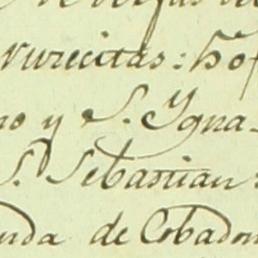 Nurecitas: ho
no y S. Ygna-
S. Sebastian:
nda de Cobadon